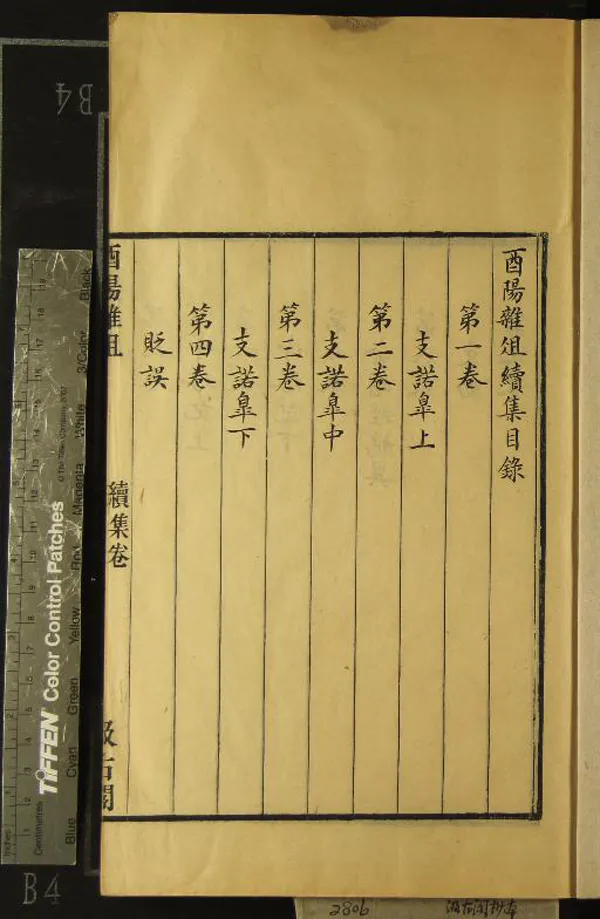 酉陽雜俎續集目錄
第一卷
支諾臯上
第二卷
支諾臯中
第三卷
支諾臯下
第四卷
貶誤
酉陽雜俎
續集卷
汲古閣
B4
TIFFEN Color Control Patches
© The Tiffen Company, 2007
Blue Cyan Green Yellow Red Magenta White 3/Color Black
Inches
Centimetres
B4
2806